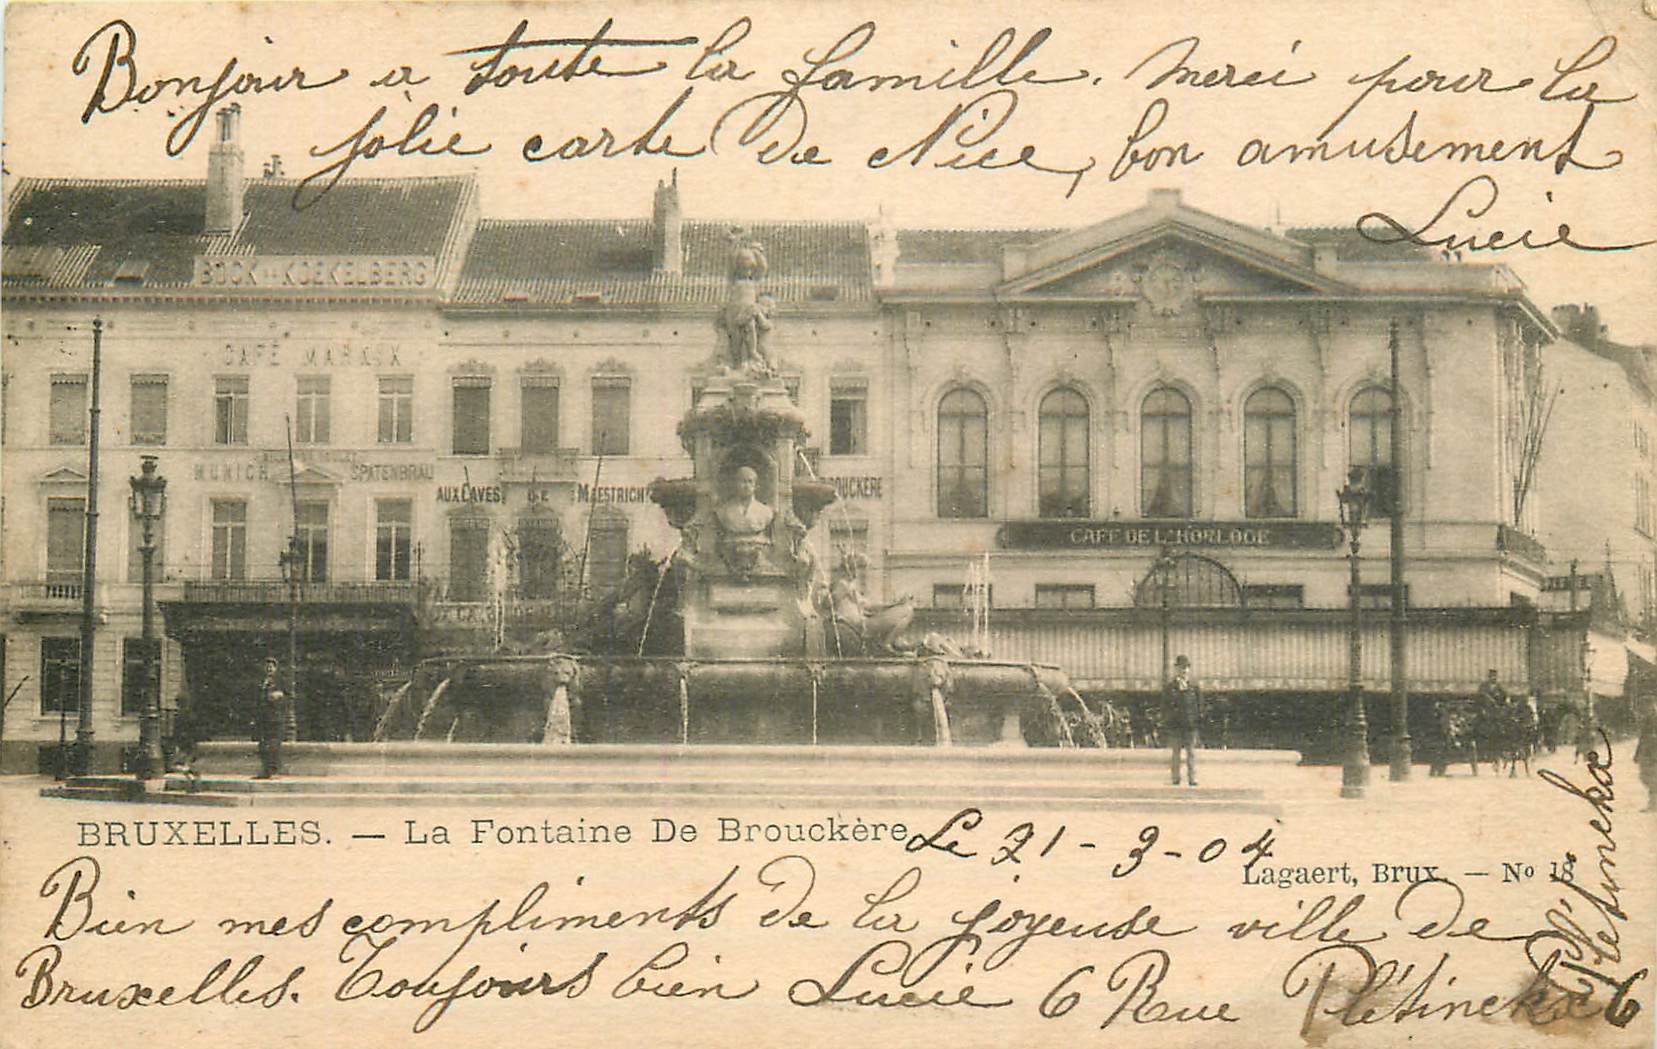 Bonjour a toute la famille. Merci pour la
jolie carte de Nice, bon amusement
Lucie
BOCK KOEKELBERG
CAFÉ MARXIX
MUNICH SPATENBRÄU
AUX CAVES DE MAESTRICH
BROUCKÈRE
CAFE DE L'HORLOGE
BRUXELLES. — La Fontaine De Brouckère
Le 21-3-04
Lagaert, Brux. — No 18
Bien mes compliments de la joyeuse ville de
Bruxelles. Toujours bien Lucie 6 Rue Plétinckx 6
Plétinckx